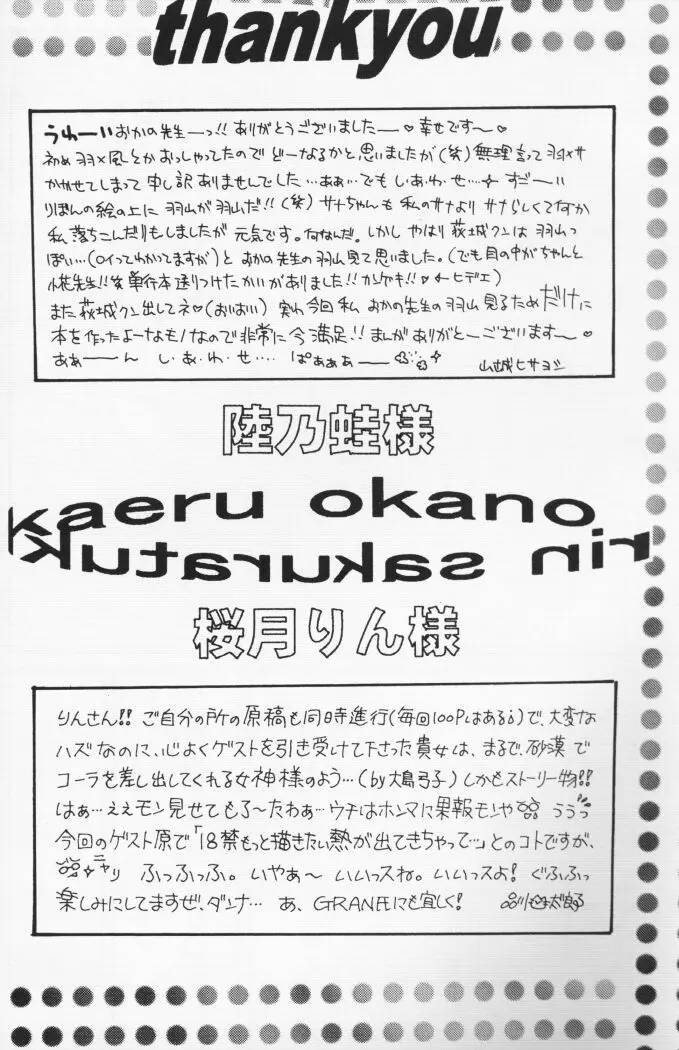 thankyou
うわーいおかの先生ーっ!! ありがとうございましたー♡幸せです〜♡
初め羽×風とかおっしゃってたのでどーなるかと思いましたが(笑)無理言って羽×サ
かかせてしまって申し訳ありませんでした…ああ…でもし・あ・わ・せ…✧すごーい
りぼんの絵の上に羽山が羽山だ!!(笑)サナちゃんも私のサナよりサナらしくてなか
私落ちこんだりもしましたが元気です。何なんだ。しかしやはり荻城クンは羽山っ
ぽい…(ロイってわかってますが)とおかの先生の羽山見て思いました。(でも目の中がちゃんと
先生!!単行本送りつけたかいがありました!!カンゲキ!!♡←ヒデェ)
また荻城クン出してネ♡(おいおい)実は今回私おかの先生の羽山見るためだけに
本を作ったよーなモノなので非常に今満足!!まんがありがとーございます〜♡
あぁーーん し・あ・わ・せ…. ぱぁぁぁー 山城ヒサヨシ
陸乃蛙様
kaeru okano
rin sakuratuk
桜月りん様
りんさん!! ご自分の所の原稿も同時進行(毎回100Pはある!)で、大変な
ハズなのに、心よくゲストを引き受けて下さった貴女は、まるで、砂漠で
コーラを差し出してくれる女神様のよう…(by大島弓子)しかもストーリー物!!
はぁ…ええモン見せてもろ〜たわぁ…ウチはホンマに果報モンや うぅっ
今回のゲスト原で「18禁もっと描きたい熱が出てきちゃって…」とのコトですが、
ニヤリ ふっふっふ。いやぁ〜 いいっスね。いいっスよ! ぐふふっ
楽しみにしてますぜ、ダンナ… あ、GRANEにも宜しく!